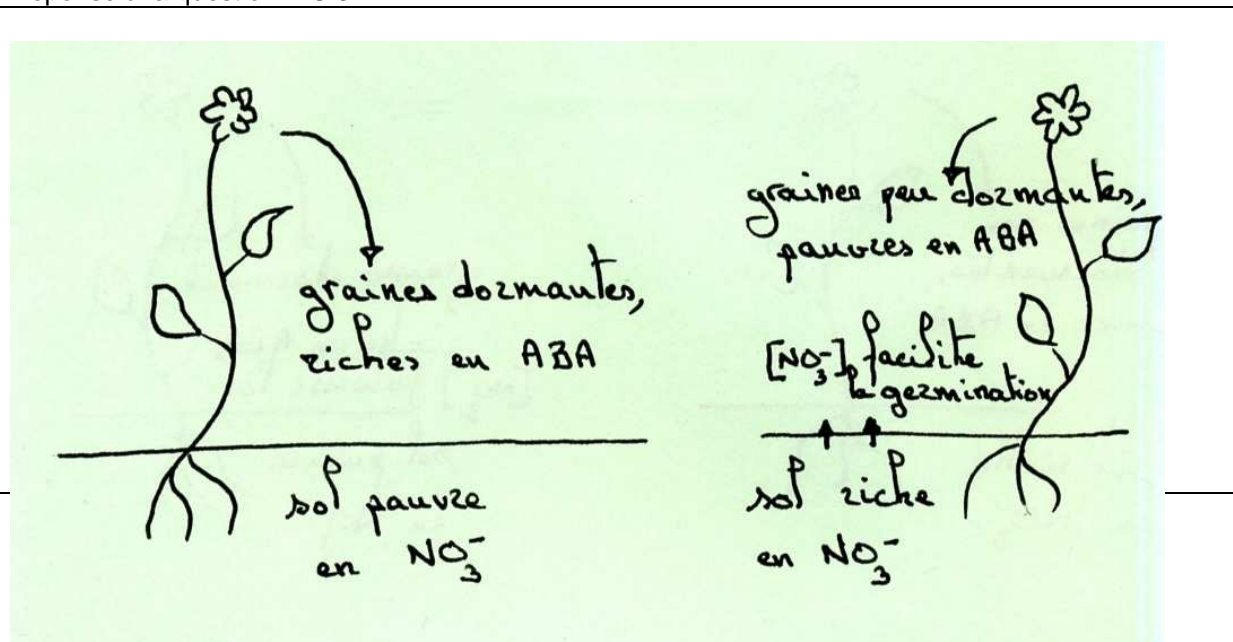 graines dormantes,
riches en ABA
sol pauvre
en NO3-
graines peu dormantes,
pauvres en ABA
[NO3-] facilite
la germination
sol riche
en NO3-